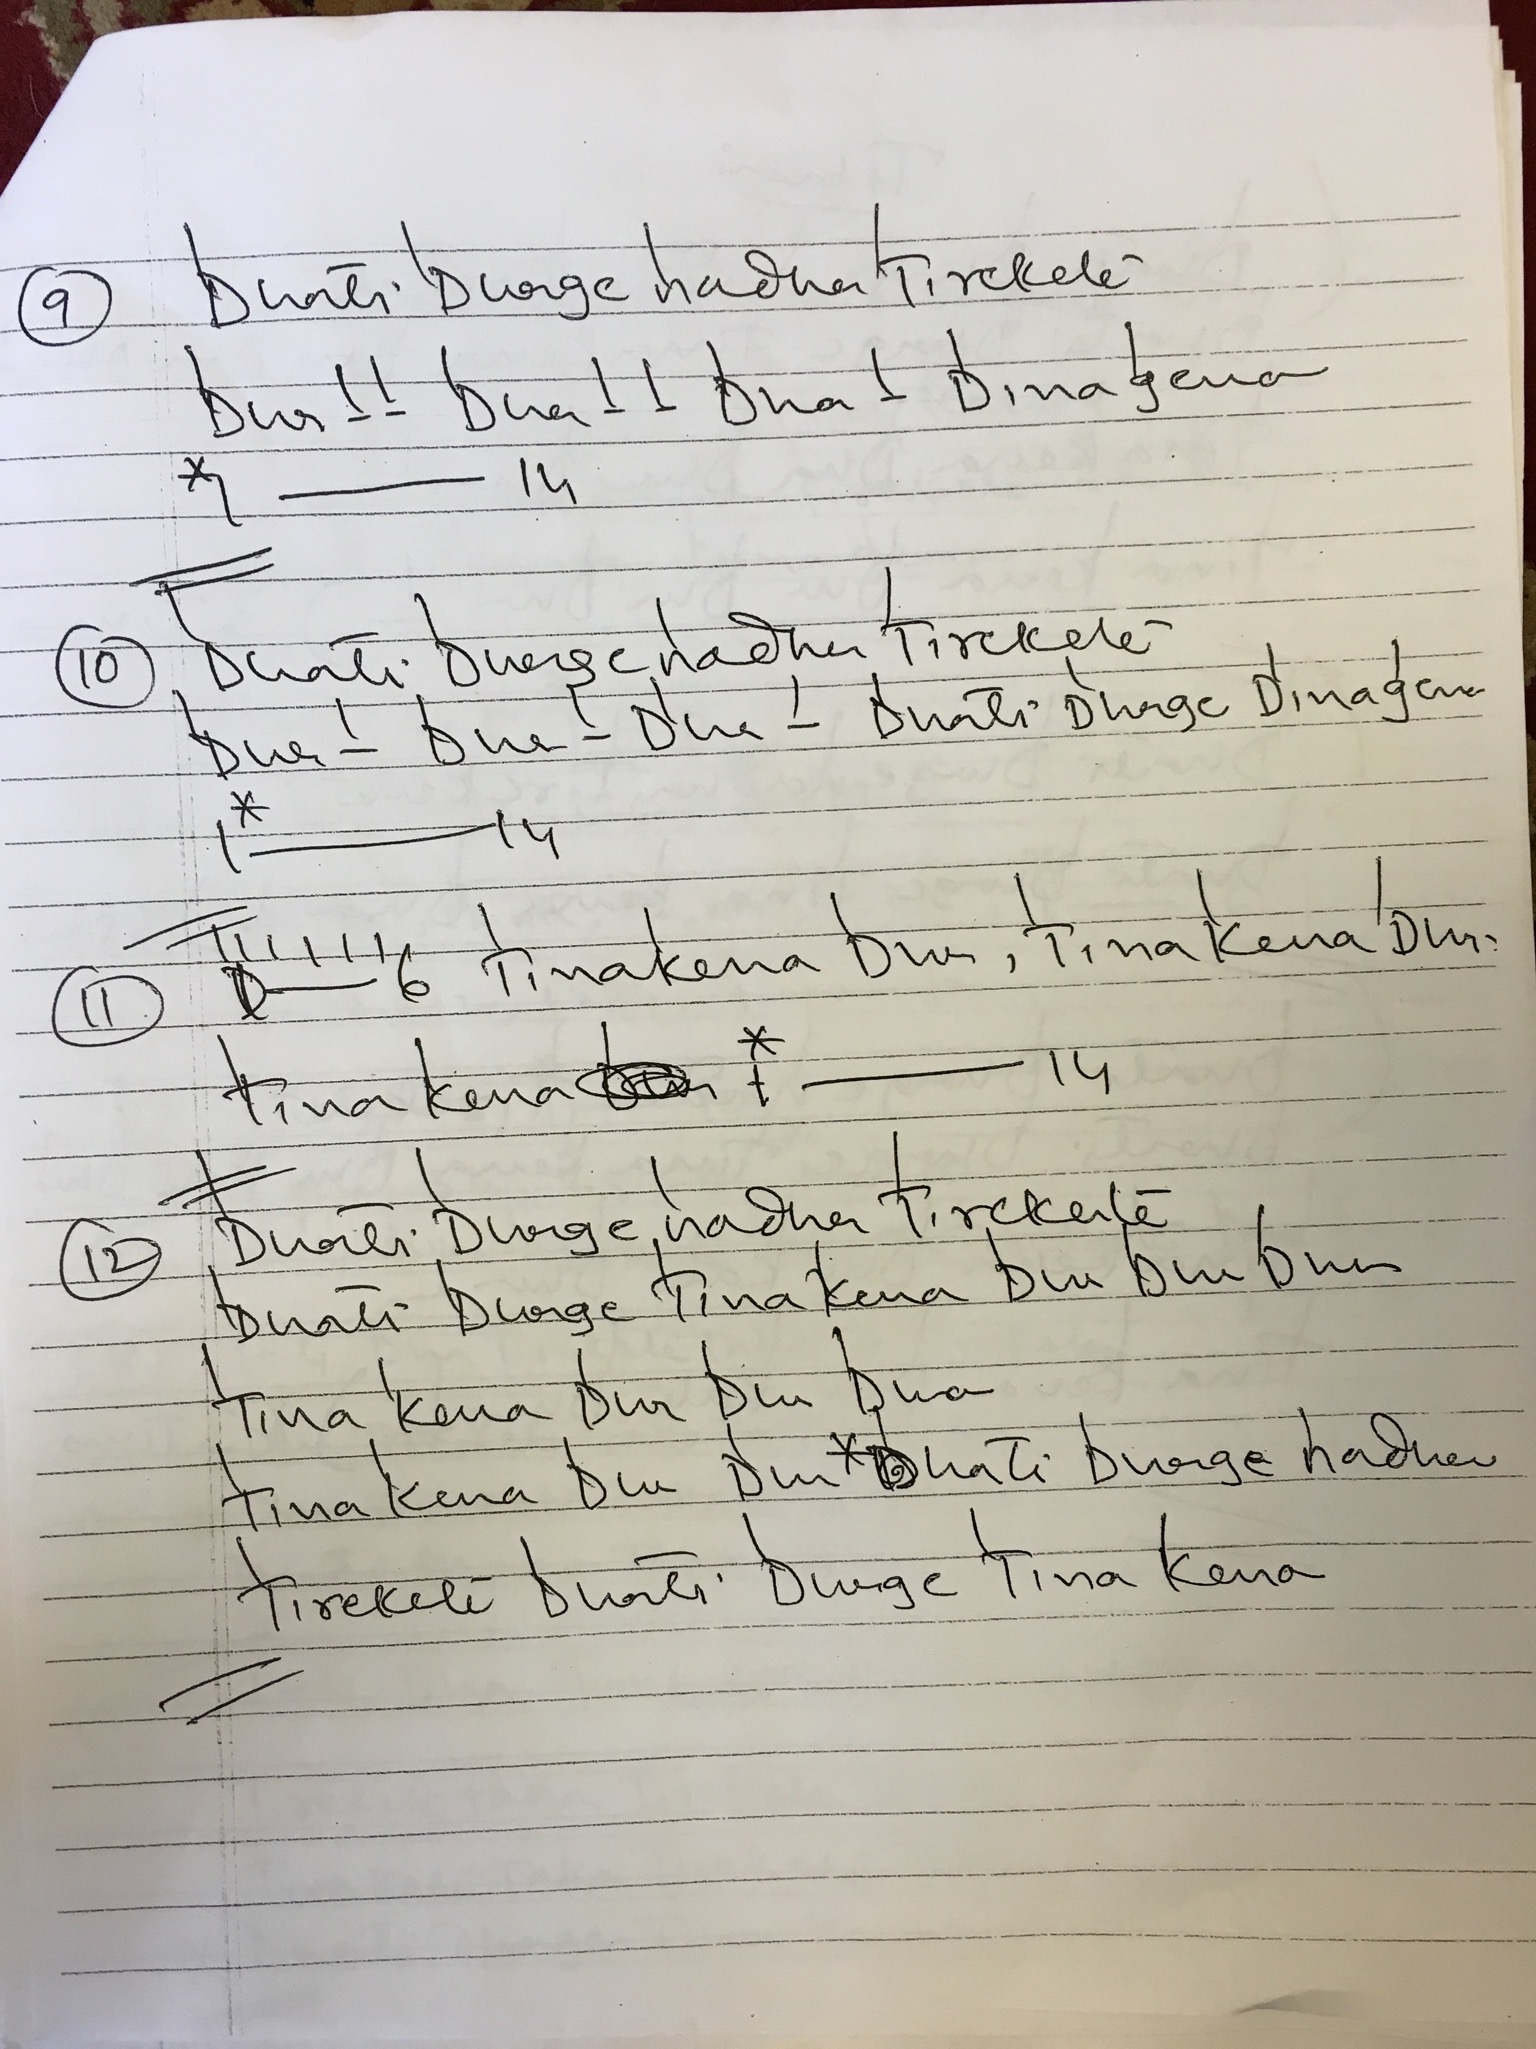 9 Dhati Dhage nadha Tirekete
Dha - - Dha - - Dha - Dinagena
*1 —— 14
10 Dhati Dhage nadha Tirekete
Dha - Dha - Dha - Dhati Dhage Dinagena
1* —— 14
11 1 —— 6 Tinakena Dha, Tinakena Dha.
Tinakena * 1 —— 14
12 Dhati Dhage nadha Tirekete
Dhati Dhage Tinakena Dha Dha Dha
Tina kena Dha Dha Dha
Tina kena Dha Dha * Dhati Dhage nadha
Tirekete Dhati Dhage Tina kena